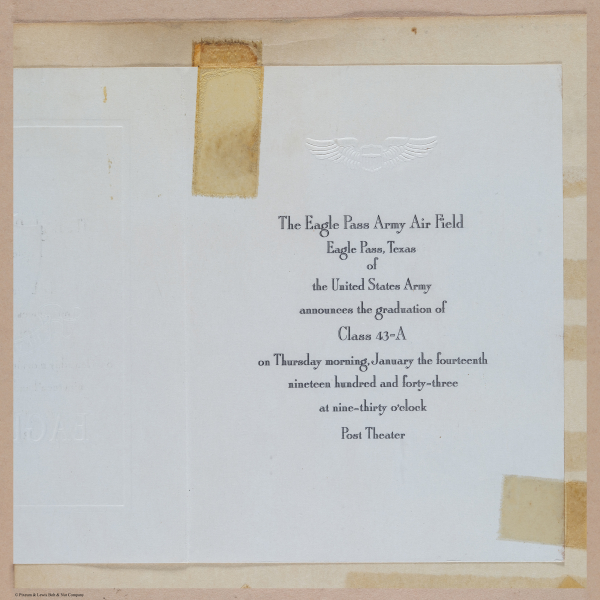 The Eagle Pass Army Air Field
Eagle Pass, Texas
of
the United States Army
announces the graduation of
Class 43-A
on Thursday morning, January the fourteenth
nineteen hundred and forty-three
at nine-thirty o'clock
Post Theater